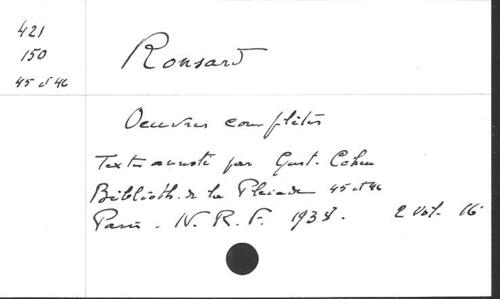 421
150
45 et 46
Ronsard
Oeuvres complètes
Texte annoté par Gust. Cohen
Biblioth. de la Pleiade 45 et 46
Paris. N. R. F. 1938. 2 vol. 16